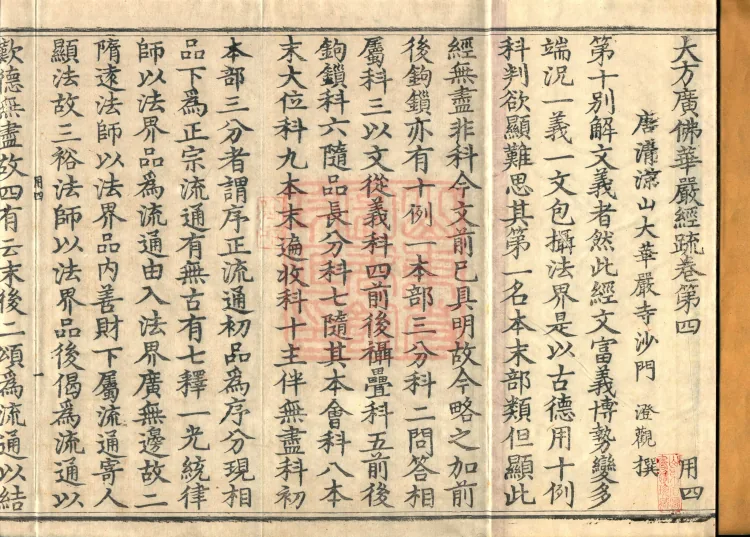 大方廣佛華嚴經疏卷第四 用四
唐清涼山大華嚴寺沙門 澄觀 撰
第十別解文義者然此經文富義博勢變多
端況一義一文包攝法界是以古德用十例
科判欲顯難思其第一名本末部類但顯此
經無盡非科今文前已具明故今略之加前
後鉤鎖亦有十例一本部三分科二問答相
屬科三以文從義科四前後攝疊科五前後
鉤鎖科六隨品長分科七隨其本會科八本
末大位科九本末遍收科十主伴無盡科初
本部三分者謂序正流通初品為序分現相
品下為正宗流通有無古有七釋一光統律
師以法界品為流通由入法界廣無邊故二
隋遠法師以法界品內善財下屬流通寄人
顯法故三裕法師以法界品後偈為流通以
用四 一
歎德無盡故四有云末後二頌為流通以結